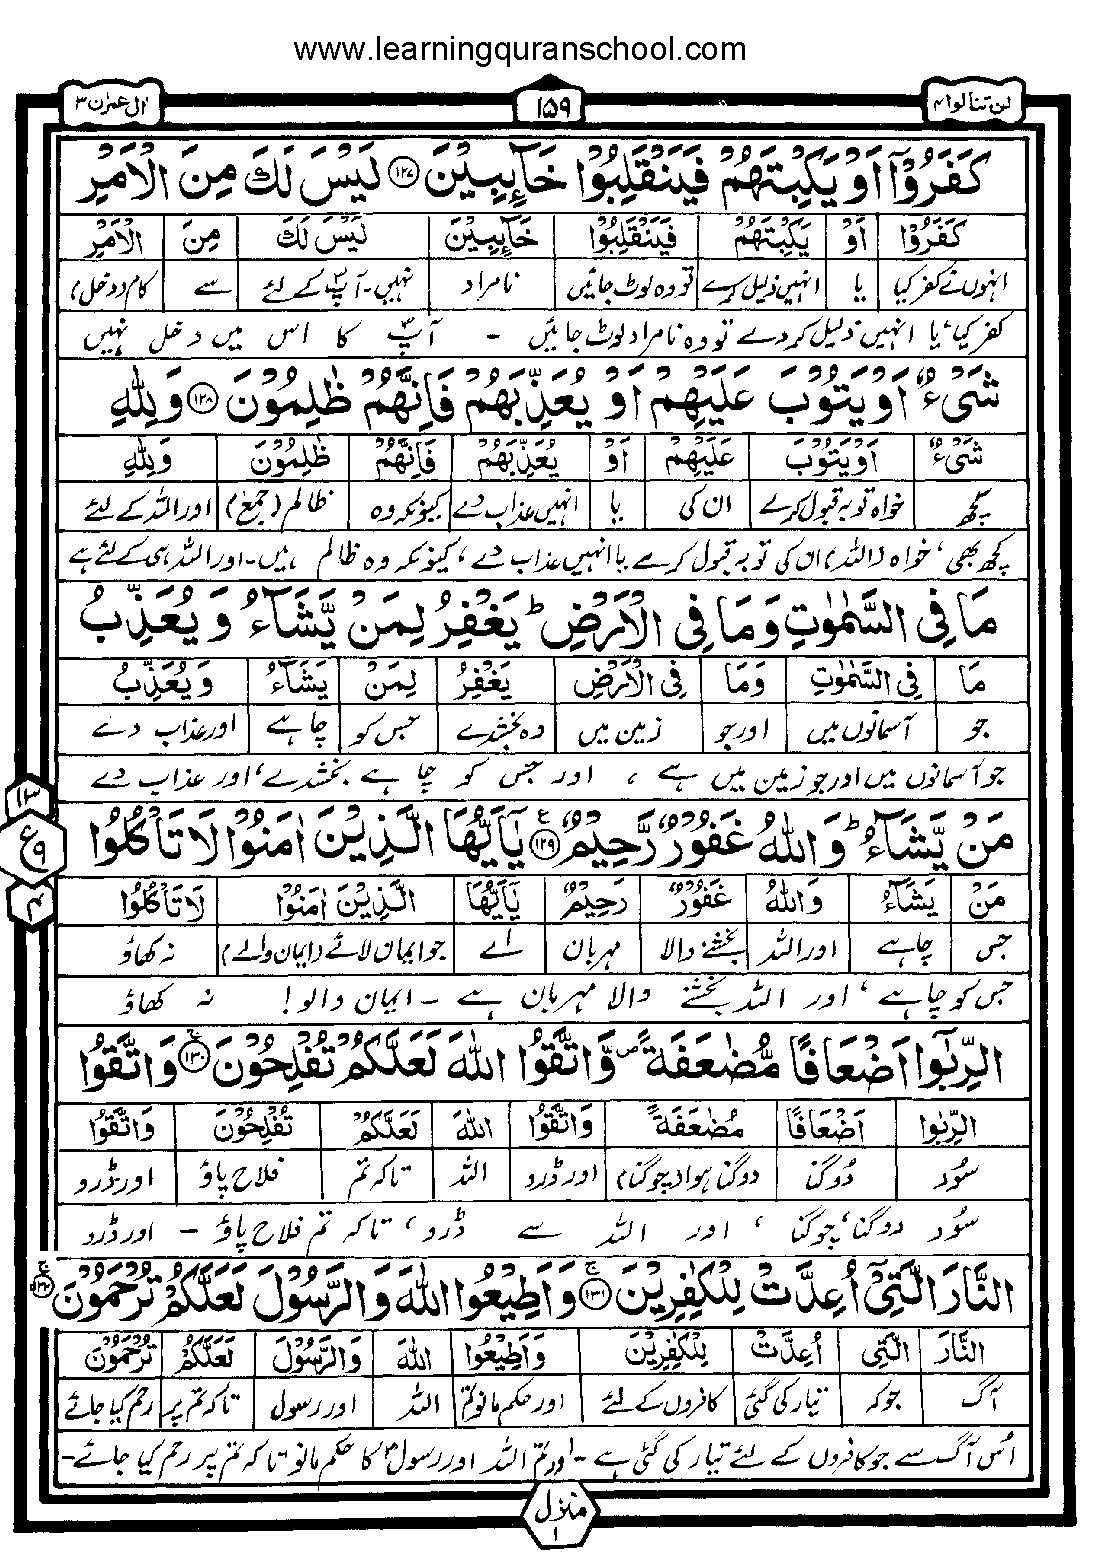 www.learningquranschool.com
لن تنالوا ۴ ۱۵۹ ال عمرٰن ۳
كَفَرُوْۤا اَوْ يَكْبِتَهُمْ فَيَنْقَلِبُوْا خَآئِبِيْنَ ۱۲۷ لَيْسَ لَكَ مِنَ الْاَمْرِ
كَفَرُوْا اَوْ يَكْبِتَهُمْ فَيَنْقَلِبُوْا خَآئِبِيْنَ لَيْسَ لَكَ مِنَ الْاَمْرِ
انہوں نے کفر کیا یا انہیں ذلیل کرے تو وہ لوٹ جائیں نامراد نہیں۔ آپؐ کے لئے سے کام (دخل)
کفر کیا، یا انہیں ذلیل کر دے تو وہ نامراد لوٹ جائیں - آپؐ کا اس میں دخل نہیں
شَیْءٌ اَوْ يَتُوْبَ عَلَيْهِمْ اَوْ يُعَذِّبَهُمْ فَاِنَّهُمْ ظٰلِمُوْنَ ۱۲۸ وَلِلّٰهِ
شَیْءٌ اَوْ يَتُوْبَ عَلَيْهِمْ اَوْ يُعَذِّبَهُمْ فَاِنَّهُمْ ظٰلِمُوْنَ وَلِلّٰهِ
کچھ خواہ توبہ قبول کرے ان کی یا انہیں عذاب دے کیونکہ وہ ظالم (جمع) اور اللہ کے لئے
کچھ بھی، خواہ (اللہ) ان کی توبہ قبول کرے یا انہیں عذاب دے، کیونکہ وہ ظالم ہیں۔ اور اللہ ہی کے لئے ہے
مَا فِی السَّمٰوٰتِ وَمَا فِی الْاَرْضِ ؕ يَغْفِرُ لِمَنْ يَّشَآءُ وَيُعَذِّبُ
مَا فِی السَّمٰوٰتِ وَمَا فِی الْاَرْضِ يَغْفِرُ لِمَنْ يَشَآءُ وَيُعَذِّبُ
جو آسمانوں میں اور جو زمین میں وہ بخشدے جس کو چاہے اور عذاب دے
جو آسمانوں میں اور جو زمین میں ہے ، اور جس کو چاہے بخشدے، اور عذاب دے
مَنْ يَّشَآءُ ؕ وَاللّٰهُ غَفُوْرٌ رَّحِيْمٌ ۱۲۹ ع يٰۤاَيُّهَا الَّذِيْنَ اٰمَنُوْا لَا تَاْكُلُوا
۱۳
ع ۹
۴
مَنْ يَشَآءُ وَاللّٰهُ غَفُوْرٌ رَحِيْمٌ يٰۤاَيُّهَا الَّذِيْنَ اٰمَنُوْا لَا تَاْكُلُوا
جس چاہے اور اللہ بخشنے والا مہربان اے جو ایمان لائے (ایمان والے) نہ کھاؤ
جس کو چاہے ، اور اللہ بخشنے والا مہربان ہے - ایمان والو! نہ کھاؤ
الرِّبٰۤوا اَضْعَافًا مُّضٰعَفَةً ۪ وَّاتَّقُوا اللّٰهَ لَعَلَّكُمْ تُفْلِحُوْنَ ۱۳۰ ج وَاتَّقُوا
الرِّبٰوا اَضْعَافًا مُضٰعَفَةً وَاتَّقُوا اللّٰهَ لَعَلَّكُمْ تُفْلِحُوْنَ وَاتَّقُوا
سُود دُوگنا دوگنا ہوا (چوگنا) اور ڈرو اللہ تاکہ تم فلاح پاؤ اور ڈرو
سُود دوگنا، چوگنا ، اور اللہ سے ڈرو ، تاکہ تم فلاح پاؤ - اور ڈرو
النَّارَ الَّتِیْۤ اُعِدَّتْ لِلْكٰفِرِيْنَ ۱۳۱ ج وَاَطِيْعُوا اللّٰهَ وَالرَّسُوْلَ لَعَلَّكُمْ تُرْحَمُوْنَ ۱۳۲ ج
النَّارَ الَّتِیْ اُعِدَّتْ لِلْكٰفِرِيْنَ وَاَطِيْعُوا اللّٰهَ وَالرَّسُوْلَ لَعَلَّكُمْ تُرْحَمُوْنَ
آگ جو کہ تیار کی گئی کافروں کے لئے اور حکم مانو تم اللہ اور رسول تاکہ تم پر رحم کیا جائے
اُس آگ سے جو کافروں کے لئے تیار کی گئی ہے - اور تم اللہ اور رسولؐ کا حکم مانو تاکہ تم پر رحم کیا جائے -
منزل ۱